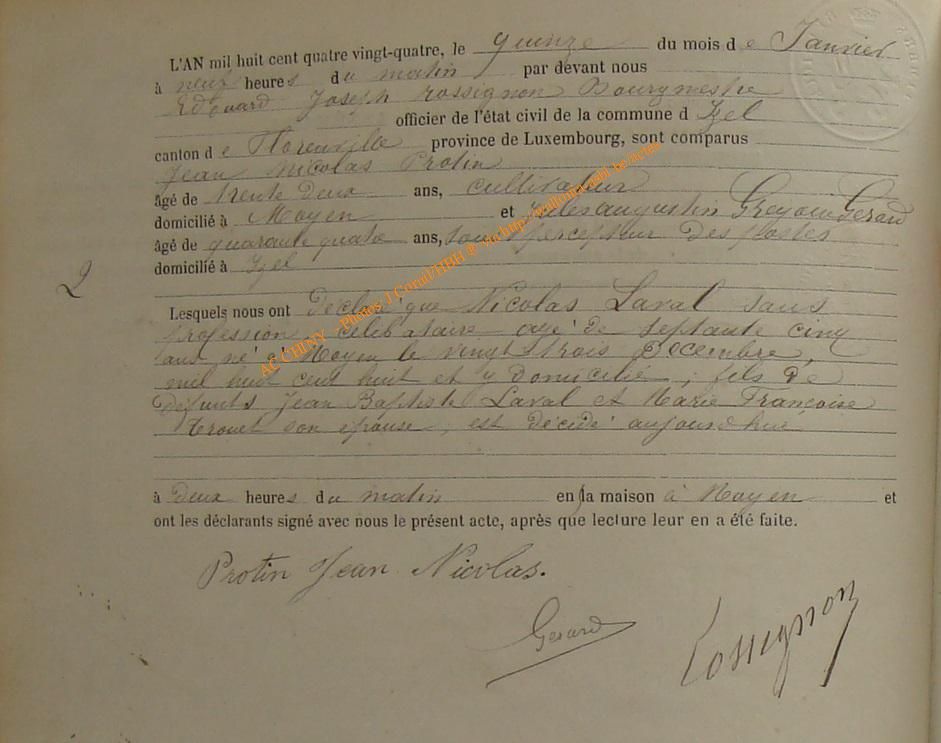 L'AN mil huit cent quatre vingt-quatre, le quinze du mois de Janvier
à neuf heures du matin par devant nous
Edouard Joseph Rossignon Bourgmestre
officier de l'état civil de la commune d Izel
canton de Florenville province de Luxembourg, sont comparus
Jean Nicolas Protin
âgé de trente deux ans, cultivateur
domicilié à Moyen et Jules augustin Gérard
âgé de quarante quatre ans, sous percepteur des postes
domicilié à Izel
2
Lesquels nous ont déclaré que Nicolas Laval sans
profession, célibataire agé de septante cinq
ans né à Moyen le vingt trois Décembre,
mil huit cent huit et y domicilié, fils de
défunts Jean Baptiste Laval et Marie Françoise
son épouse, est décédé aujourd'hui
à deux heures du matin en la maison à Moyen et
ont les déclarants signé avec nous le présent acte, après que lecture leur en a été faite.
Protin Jean Nicolas.
Gerard
Rossignon
AC CHINY - Photos J Cornil/HBH @ via http://wallonica.ibi.be/actes